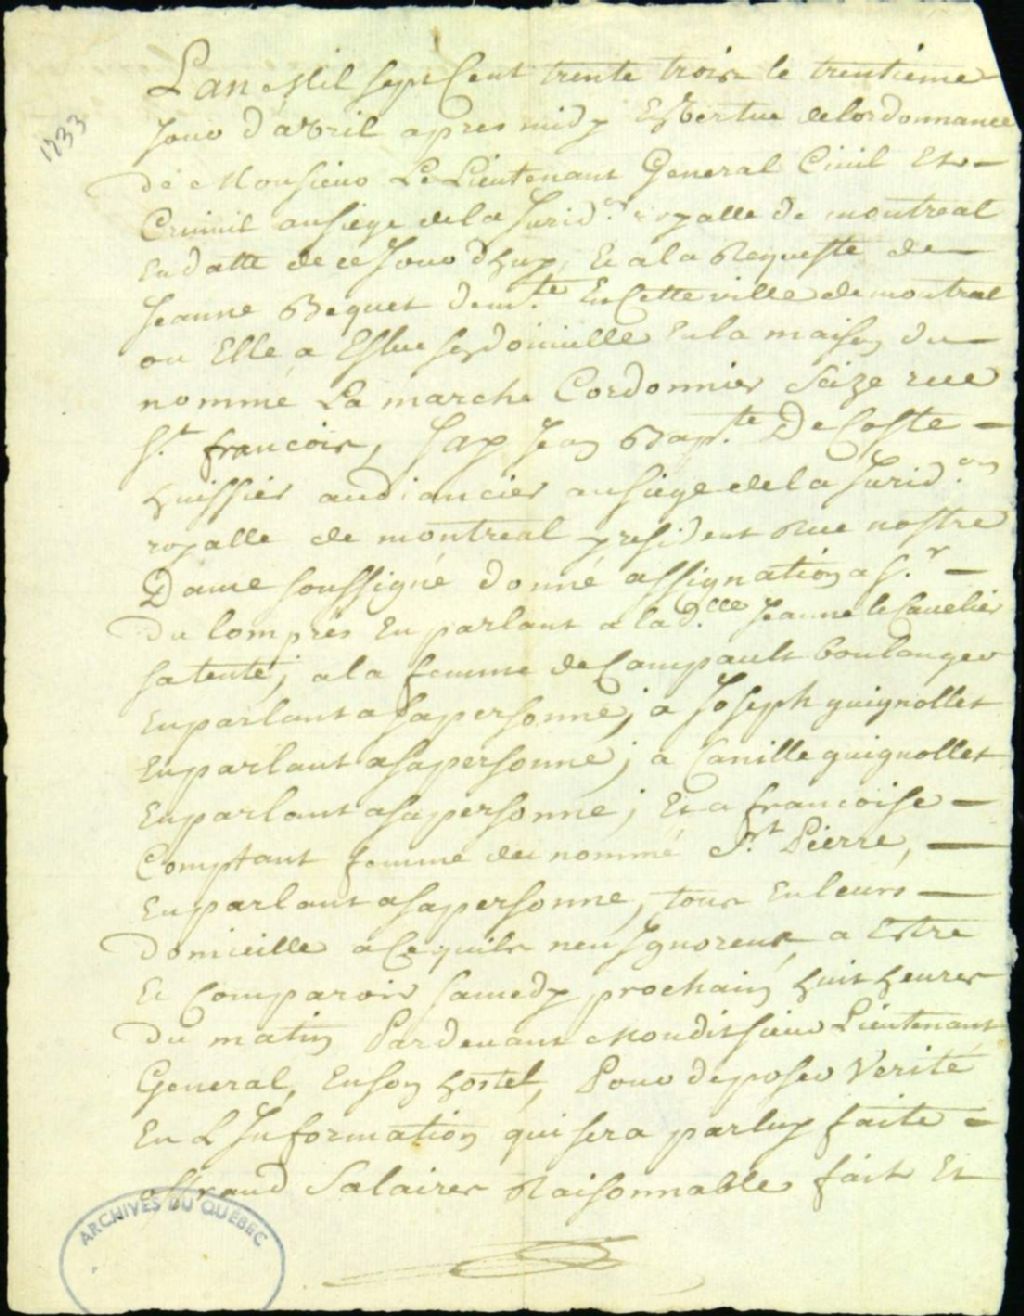 1733
Lan Mil sept Cent trente trois le trentieme
Jour davril apres midy En vertue delordonnance
de Monsieur Le Lieutenant General Civil Et
Criminel ausiege dela Jurid.on royalle de montreal
En datte de ce Jourdhuy, Et ala Requeste de
Jeanne Bequet dem.te En Cette ville de montreal
ou Elle a Eslue son domicille En la maison du
nommé La marche Cordonnier Seize rue
S.t francois, Jay Jean Bap.te DeCoste
huissier audiancier ausiege dela Jurid.on
royalle de montreal y resident Rue nostre
Dame soussigné donné assignation a S.r
du lompres En parlant a la d.elle Jeanne le Cavelier
sa tente; a la femme de Campault boulanger
En parlant asapersonne; a Joseph guignollet
En parlant asapersonne; a Canille guignollet
En parlant asapersonne; Et a francoise
Comptant femme du nommé S.t Pierre,
En parlant asapersonne, tous En leurs
domicille a Cequils nen Ignorent, a Estre
Et Comparoir samedy prochain huit heures
du matin Pardevant Monditsieur Lieutenant
General, En son hostel, Pour deposer Verité
En L Information qui sera par luy faite
Salaires Raisonnables fait Et
ARCHIVES DU QUÉBEC